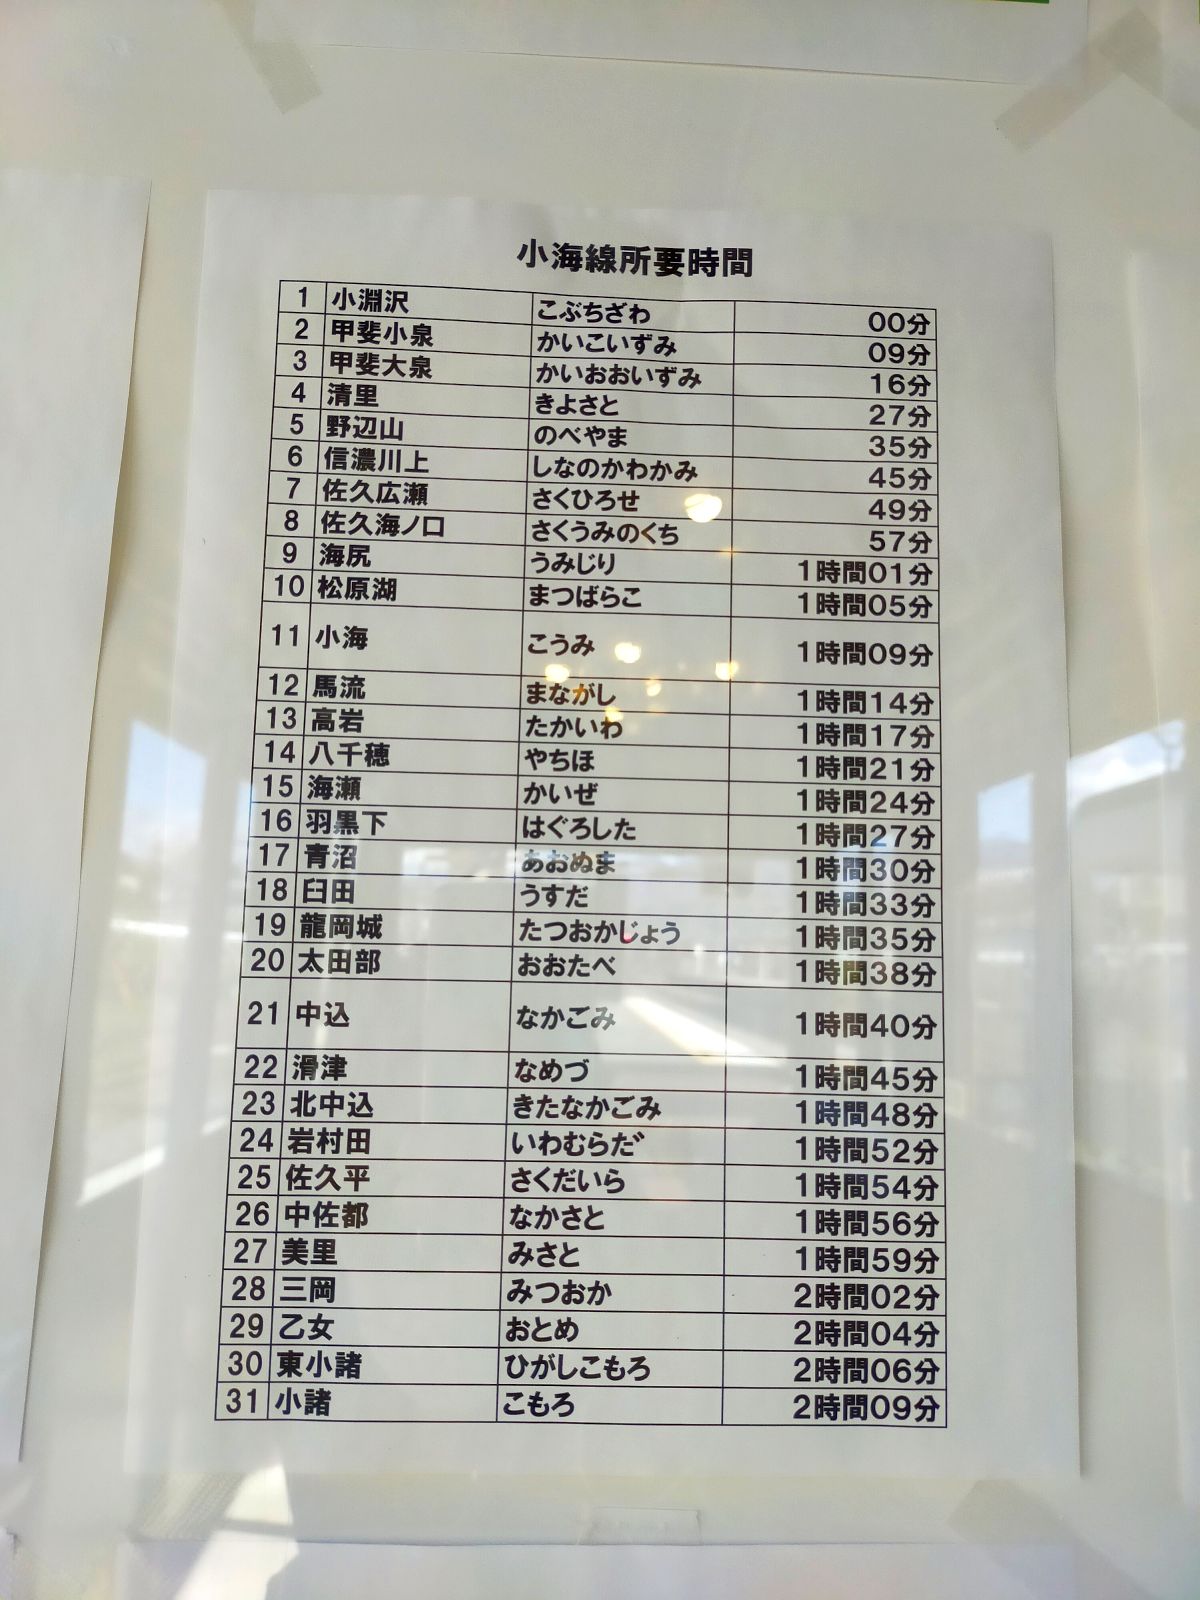 小海線所要時間
1 小淵沢 こぶちざわ 00分
2 甲斐小泉 かいこいずみ 09分
3 甲斐大泉 かいおおいずみ 16分
4 清里 きよさと 27分
5 野辺山 のべやま 35分
6 信濃川上 しなのかわかみ 45分
7 佐久広瀬 さくひろせ 49分
8 佐久海ノ口 さくうみのくち 57分
9 海尻 うみじり 1時間01分
10 松原湖 まつばらこ 1時間05分
11 小海 こうみ 1時間09分
12 馬流 まながし 1時間14分
13 高岩 たかいわ 1時間17分
14 八千穂 やちほ 1時間21分
15 海瀬 かいぜ 1時間24分
16 羽黒下 はぐろした 1時間27分
17 青沼 あおぬま 1時間30分
18 臼田 うすだ 1時間33分
19 龍岡城 たつおかじょう 1時間35分
20 太田部 おおたべ 1時間38分
21 中込 なかごみ 1時間40分
22 滑津 なめづ 1時間45分
23 北中込 きたなかごみ 1時間48分
24 岩村田 いわむらだ 1時間52分
25 佐久平 さくだいら 1時間54分
26 中佐都 なかさと 1時間56分
27 美里 みさと 1時間59分
28 三岡 みつおか 2時間02分
29 乙女 おとめ 2時間04分
30 東小諸 ひがしこもろ 2時間06分
31 小諸 こもろ 2時間09分